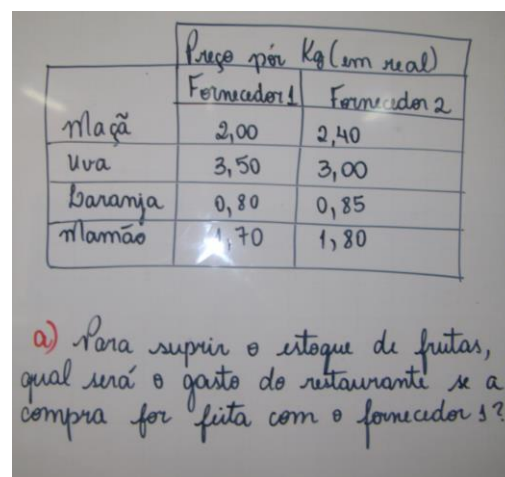 Preço por Kg (em real)
Fornecedor 1 Fornecedor 2
Maçã 2,00 2,40
Uva 3,50 3,00
Laranja 0,80 0,85
Mamão 1,70 1,80
a) Para suprir o estoque de frutas,
qual será o gasto do restaurante se a
compra for feita com o fornecedor 1?